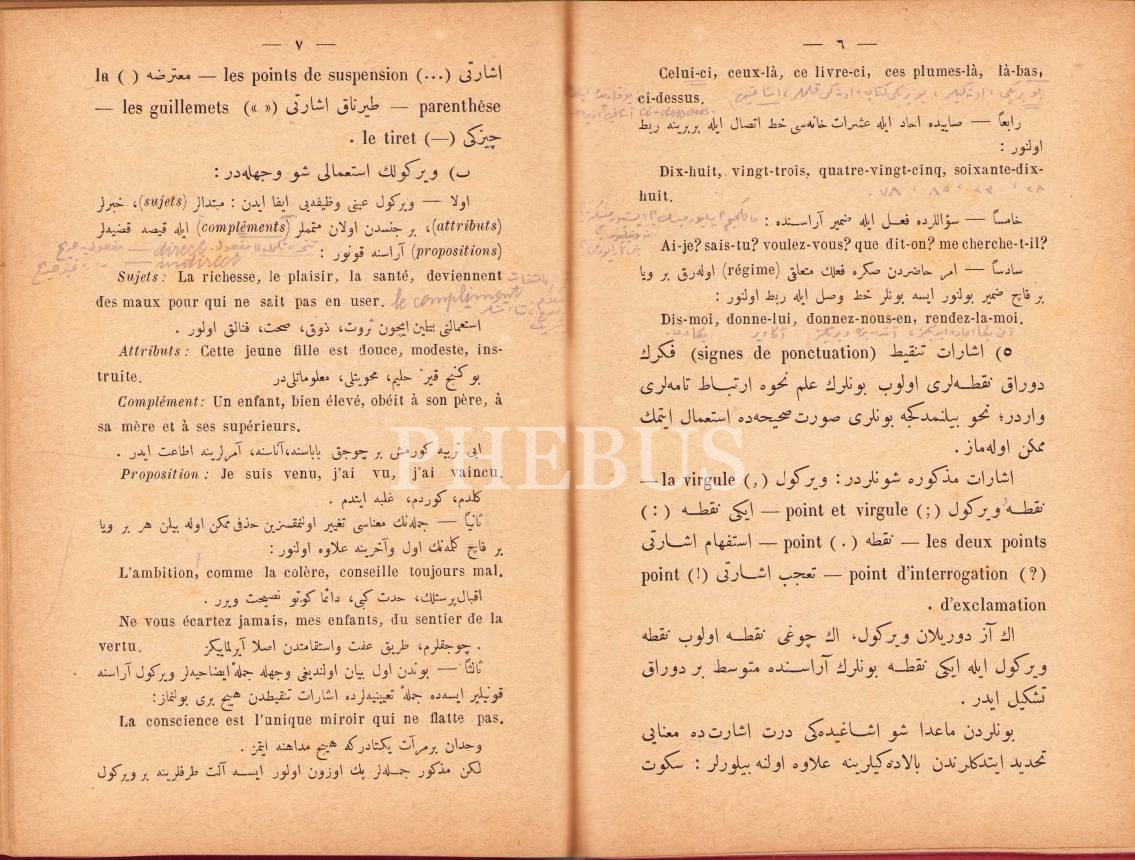 — ٦ —
Celui-ci, ceux-là, ce livre-ci, ces plumes-là, là-bas,
ci-dessus.
رابعاً — صاییده احاد ایله عشرات خانه‌سی خط اتصال ایله بربرینه ربط
اولنور :
Dix-huit, vingt-trois, quatre-vingt-cinq, soixante-dix-
huit.
٧٨ ، ٨٥ ، ٢٣ ،
خامساً — سؤاللرده فعل ایله ضمیر آراسنده :
Ai-je? sais-tu? voulez-vous? que dit-on? me cherche-t-il?
سادساً — امر حاضردن صکره فعلك متعلقی (régime) اوله‌رق بر ویا
بر قاچ ضمیر بولنور ایسه بونلر خط وصل ایله ربط اولنور :
Dis-moi, donne-lui, donnez-nous-en, rendez-la-moi.
٥) اشارات تنقیط (signes de ponctuation) فکرك
دوراق نقطه‌لری اولوب بونلرك علم نحوه ارتباط تامه‌لری
واردر؛ نحو بیلنمدکجه بونلری صورت صحیحه‌ده استعمال ایتمك
ممکن اوله‌ماز .
اشارات مذکوره شونلردر : ویرکول (,) la virgule —
نقطه ویرکول (;) point et virgule — ایکی نقطه (:)
les deux points — نقطه (.) point — استفهام اشارتی
(?) point d'interrogation — تعجب اشارتی (!) point
d'exclamation .
اك آز دوریلان ویرکول، اك چوغی نقطه اولوب نقطه
ویرکول ایله ایکی نقطه بونلرك آراسنده متوسط بر دوراق
تشکیل ایدر .
بونلردن ماعدا شو اشاغیده‌کی درت اشارت‌ده معنایی
تحدید ایتدکلرندن بالاده‌کیلرینه علاوه اولنه بیلورلر : سکوت
— ٧ —
اشارتی (...) les points de suspension — معترضه ( ) la
parenthèse — طیرناق اشارتی (« ») les guillemets —
چیزکی (—) le tiret .
ب) ویرکولك استعمالی شو وجهله‌در :
اولا — ویرکول عینی وظیفه‌یی ایفا ایدن : مبتدالر (sujets)، خبرلر
(attributs)، بر جنسدن اولان متمملر (compléments) ایله قیصه قضیه‌لر
(propositions) آراسنه قونور :
direct
indirect
Sujets : La richesse, le plaisir, la santé, deviennent
des maux pour qui ne sait pas en user.
le complément
استعمالنی بیلمین ایچون ثروت، ذوق، صحت، فنالق اولور .
Attributs : Cette jeune fille est douce, modeste, ins-
truite. بو کنج قیز حلیم، محویتلی، معلوماتلی‌در
Complément: Un enfant, bien élevé, obéit à son père, à
sa mère et à ses supérieurs.
ایی تربیه کورمش بر چوجق باباسنه، آناسنه، آمرلرینه اطاعت ایدر .
Proposition : Je suis venu, j'ai vu, j'ai vaincu.
کلدم، کوردم، غلبه ایتدم .
ثانیاً — جمله‌نك معناسی تغییر اولنمقسزین حذفی ممکن اوله بیلن هر بر ویا
بر قاچ کلمه‌نك اول وآخرینه علاوه اولنور :
L'ambition, comme la colère, conseille toujours mal.
اقبال‌پرستلك، حدت کبی، دائما کوتو نصیحت ویرر .
Ne vous écartez jamais, mes enfants, du sentier de la
vertu. چوجقلرم، طریق عفت واستقامتدن اصلا آیرلمایکز .
ثالثاً — بوندن اول بیان اولندیغی وجهله جملۀ ایضاحیه‌لر ویرکول آراسنه
قونیلیر ایسه‌ده جملۀ تعیینیه‌لرده اشارات تنقیطدن هیچ بری بولنماز:
La conscience est l'unique miroir qui ne flatte pas.
وجدان بر مرآت یکتادر که هیچ مداهنه ایتمز .
لکن مذکور جمله‌لر پك اوزون اولور ایسه آلت طرفلرینه بر ویرکول
PHEBUS